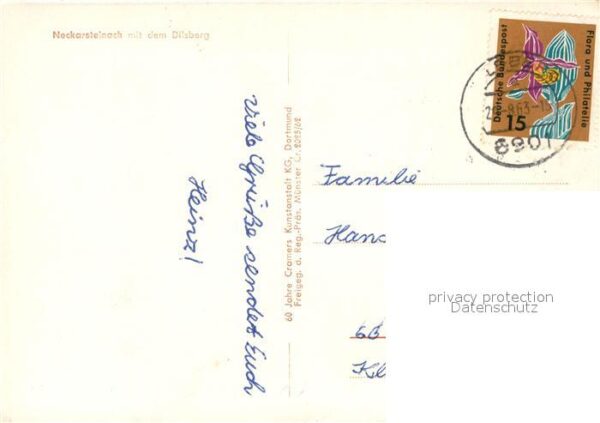 Neckarsteinach mit dem Dilsberg
Viele Grüße sendet Euch
Heinz!
60 Jahre Cramers Kunstanstalt KG, Dortmund
Freigeg. d. Reg.-Präs. Münster Cr. 2095/62
Deutsche Bundespost
Flora und Philatelie
15
8.63-1
6901
Familie
Hans
privacy protection
Datenschutz